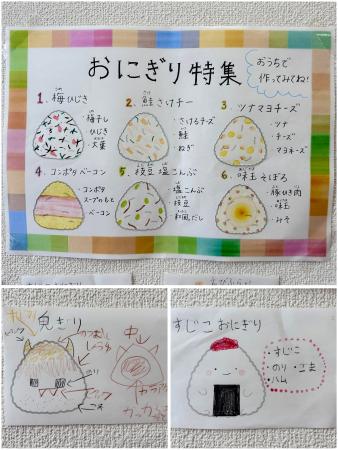 おにぎり特集
おうちで
作ってみてね!
1. 梅ひじき
・梅干し
・ひじき
・大葉
2. 鮭さけチー
・さけるチーズ
・鮭
・ねぎ
3 ツナマヨチーズ
・ツナ
・チーズ
・マヨネーズ
4 コンポタベーコン
・コンポタ
スープのもと
・ベーコン
5. 枝豆塩こんぶ
・塩こんぶ
・枝豆
・和風だし
6. 味玉そぼろ
・豚ひき肉
・味玉
・みそ
鬼ぎり
かつおぶし
しょうゆ
のり
ごま
中
すじこおにぎり
・すじこ
・のり ・ごま
・ハム